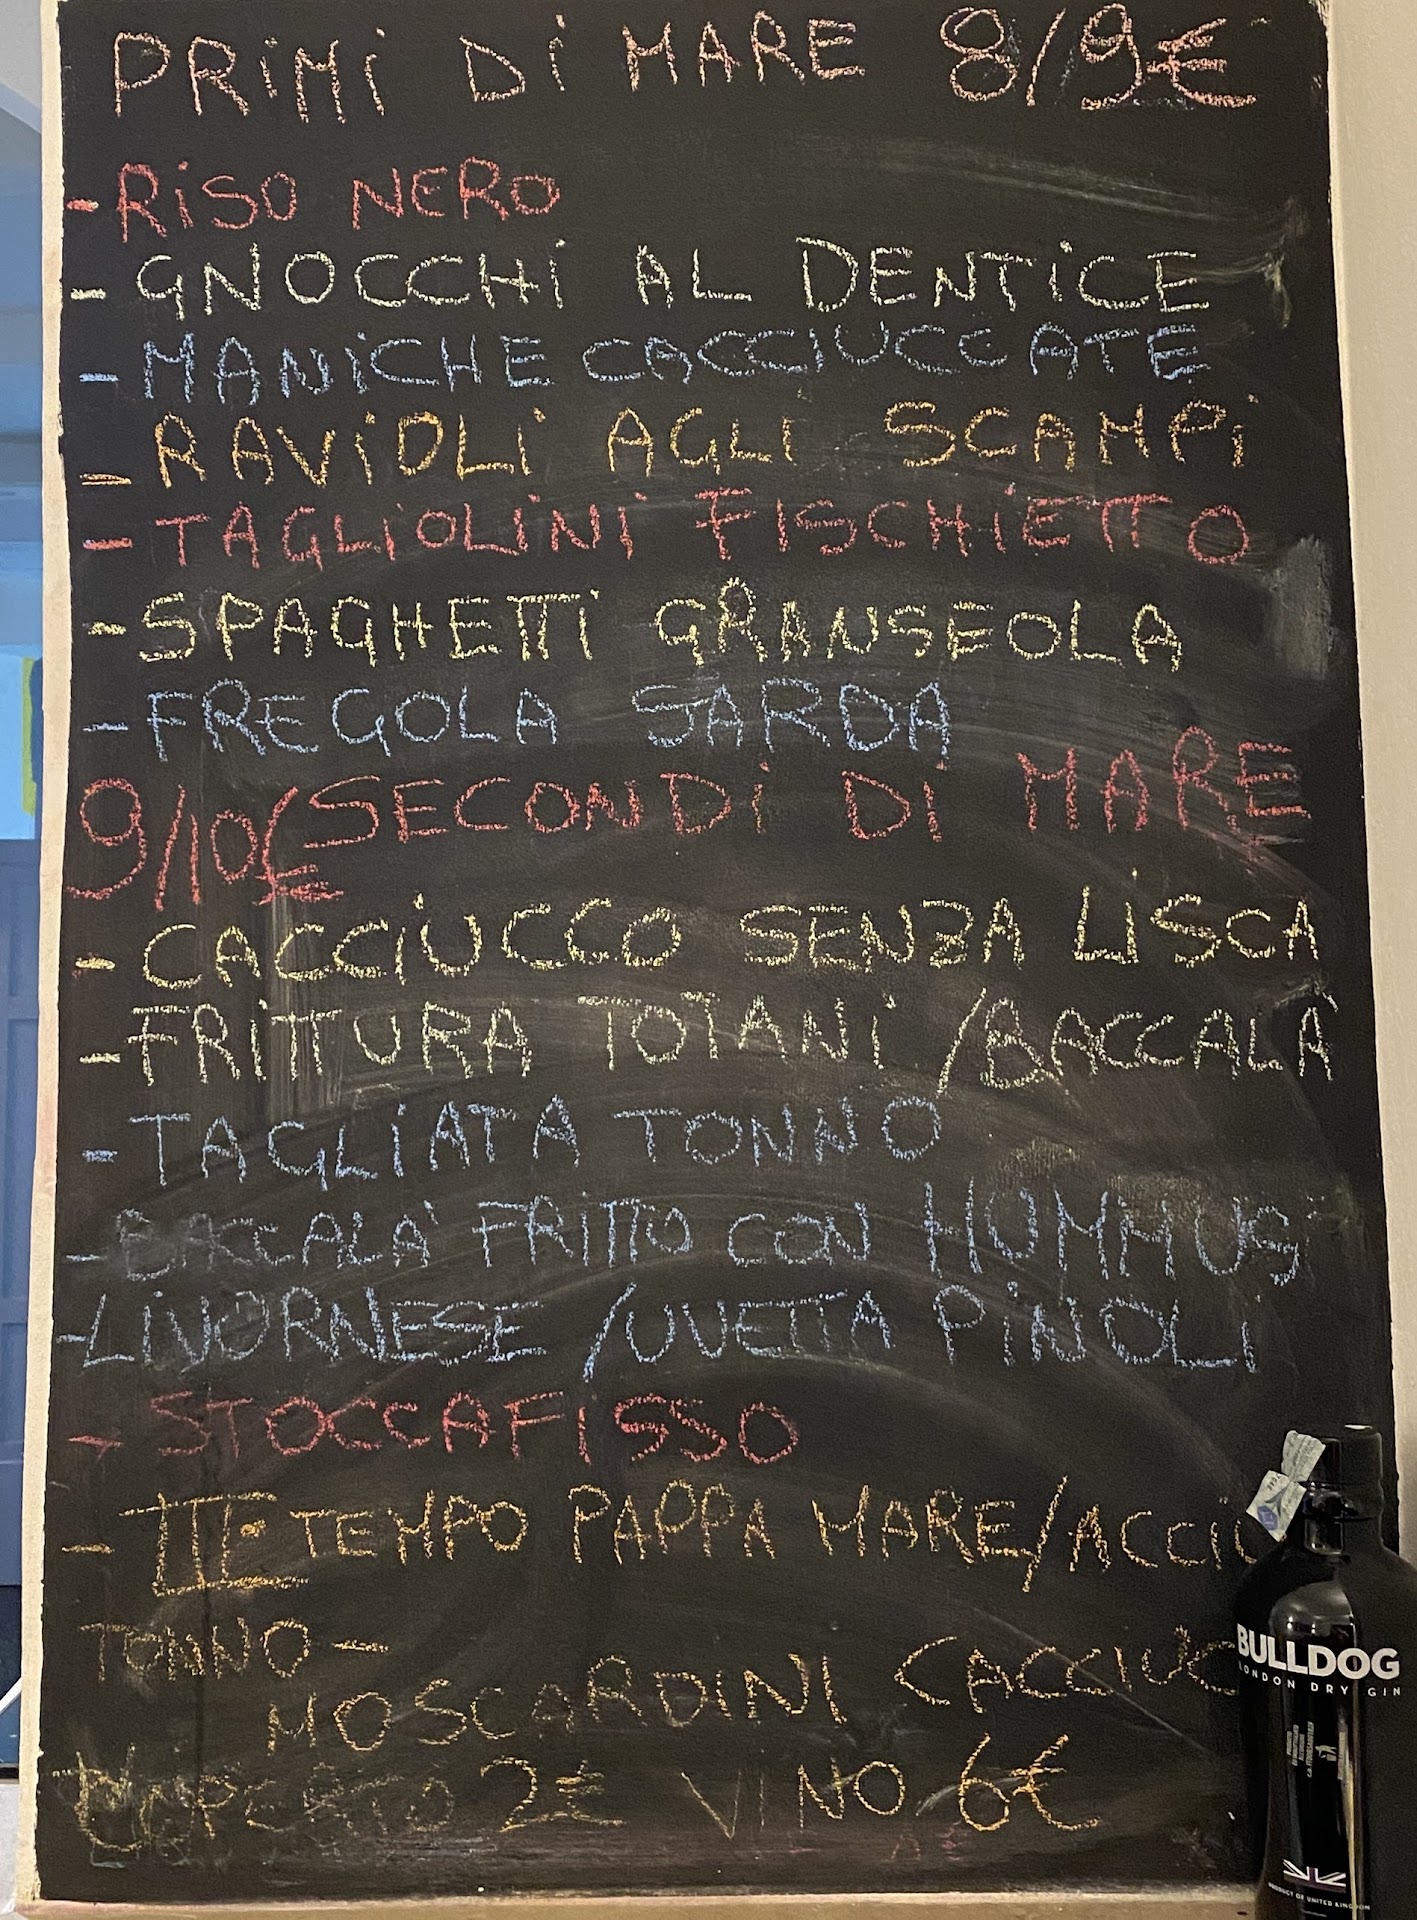 PRIMI DI MARE 8/9€
- RISO NERO
- GNOCCHI AL DENTICE
- MANICHE CACCIUCCATE
- RAVIOLI AGLI SCAMPI
- TAGLIOLINI FISCHIETTO
- SPAGHETTI GRANSEOLA
- FREGOLA SARDA
9/10€ SECONDI DI MARE
- CACCIUCCO SENZA LISCA
- FRITTURA TOTANI/BACCALÀ
- TAGLIATA TONNO
- BACCALA' FRITTO CON HUMMUS
- LIVORNESE/UVETTA PINOLI
- STOCCAFISSO
- III TEMPO PAPPA MARE/ACCIU
TONNO-
MOSCARDINI CACCIUC
2€ VINO 6€
BULLDOG
LONDON DRY GIN
PRODUCT OF UNITED KINGDOM